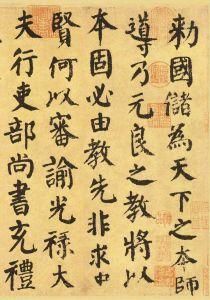 勅國儲為天下之本師
導乃元良之教將以
本固必由教先非求中
賢何以審諭光祿大
夫行吏部尚書充禮